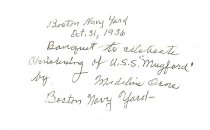 Boston Navy Yard
Oct. 31, 1936
Banquet to celebrate
Christening of U.S.S. Mugford'
by Madeline
Boston Navy Yard—